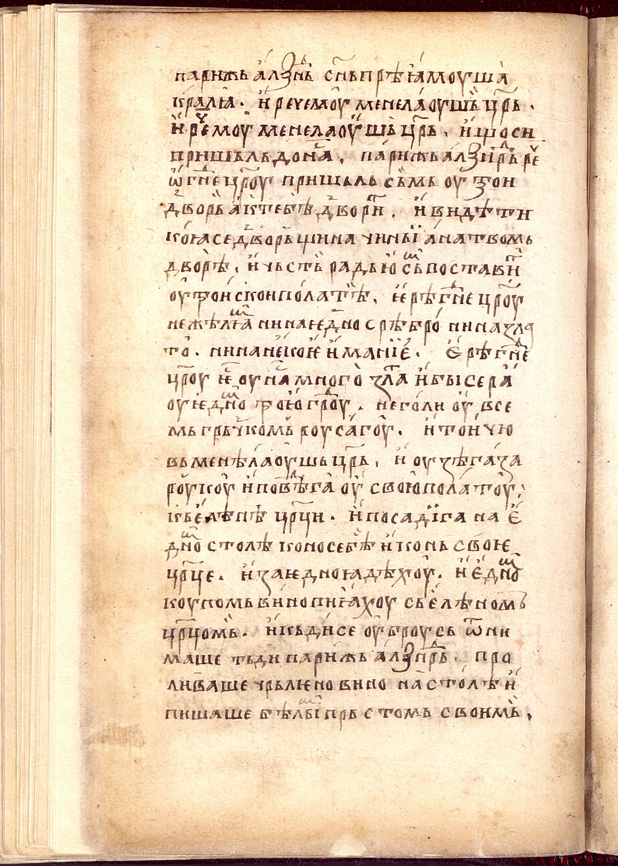 парижь алз̾нь сн҃ь прѣꙗмоуша
кралꙗ · и҆ рече моу҆ менелаоушь цр҃ь ·
и҆ рⷱ҇е моу҆ менелаоу҆шь цр҃ь · и҆ що си
пришьль до на · парижь алзн҃рь рⷱ҇е
ѿ гн҃е цр҃оу пришьль сьмь оу тои
дворь а҆ к тебѣ дворⷩ҇и · и҆ видѣти
коꙗ се дворьщина чини а҆ на твомь
дворѣ · и҆ чьсти радь ю с поставⷩ҇и
оу тои скои полатѣ · и҆ рⷱ҇е гн҃е цр҃оу
не желꙗ ни на ѥдно сребро ни на зла
то · ни на неⷦ҇кое и҆мание · е҆ рⷱ҇е гн҃е
цр҃оу ѥⷭ҇ оу на много злⷮа и҆ бисера
оу ѥдно тою гр҃оу · неголи оу҆ все
мь грⷱ҇комь роусагоу · и҆ то чю
вь менѣлаоушь цр҃ь · и҆ оу зѣ га за
роукоу и҆ поведе га оу свою полатоу ·
кь е҆лѣнѣ цр҃ци · и҆ посади га на е҆
дно столѣ коно себѣ и҆ конь свое
цр҃це · и҆ заѥдно ꙗдѣхоу · и҆ е҆дно
коупомь вино пиꙗхоу сь е҆лѣномь
цр҃цомь · и҆ кьди се оу҆броусь ѿни
маше тьди парижь алзн҃рь · про
ливаше чрьлѥно вино на столѣ и҆
пишаше бѣлы прьстомь своимь ·